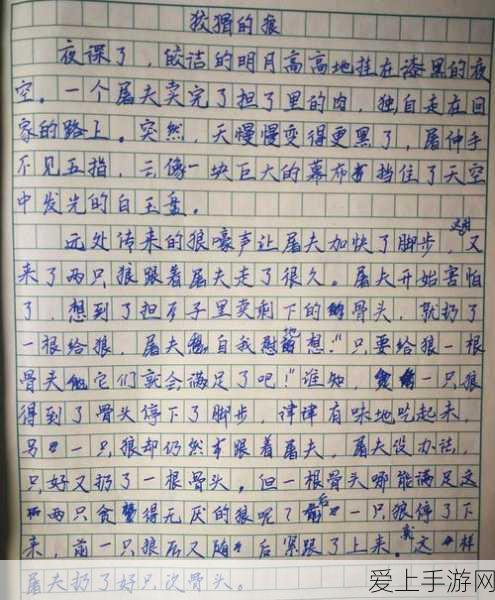 狡猾的狼
夜深了，皎洁的明月高高地挂在漆黑的夜
空。一个屠夫卖完了担子里的肉，独自走在回
家的路上。突然，天慢慢变得更黑了，屠伸手
不见五指，云像一块巨大的幕布挡住了天空
中发光的白玉盘。
远处传来的狼嚎声让屠夫加快了脚步，又
来了两只狼跟着屠夫走了很久。屠夫开始害怕
了，想到了担子里卖剩下的骨头，就扔了
一根给狼，屠夫自我慰想："只要给狼一根
骨头它们就会满足了吧！"谁知，一只狼
得到了骨头停下了脚步，津津有味地吃起来，
另一只狼却仍然跟着屠夫，屠夫没办法，
只好又扔了一根骨头。但一根骨头哪能满足这
两只贪得无厌的狼呢？后一只狼停了下
来，前一只狼又随后紧跟了上来。就这样
屠夫扔了好几次骨头。
爱上手游网